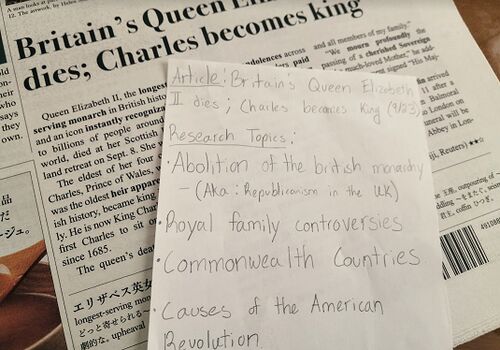 12. The artwork, by Helen
Britain's Queen Eliz
dies; Charles becomes king
Queen Elizabeth II, the longest-
serving monarch in British histo
and an icon instantly recogniz
to billions of people aroun
world, died at her Scottish
land retreat on Sept. 8. She w
The eldest of her four
Charles, Prince of Wales,
was the oldest heir appar
ish history, became king
ly. He is now King Char
first Charles to sit o
since 1685.
The queen's dea
エリザベス英女
longest-serving mon
どっと寄せられる～
劇的な。upheaval
ndolences across
paid
and all members of my family."
"We mourn profoundly the
passing of a cherished Sovereign
much-loved Mother," he add-
signed "His Maj-
arrived
11 after a
Balmoral
London on
funeral will be
Abbey in Lon-
Reuters) ★★☆
Article: Britain's Queen Elizabeth
II dies; Charles becomes King (9/23)
Research Topics:
• Abolition of the british monarchy
- (Aka: Republicanism in the UK)
• Royal family controversies
• Commonwealth Countries
• Causes of the American
Revolution